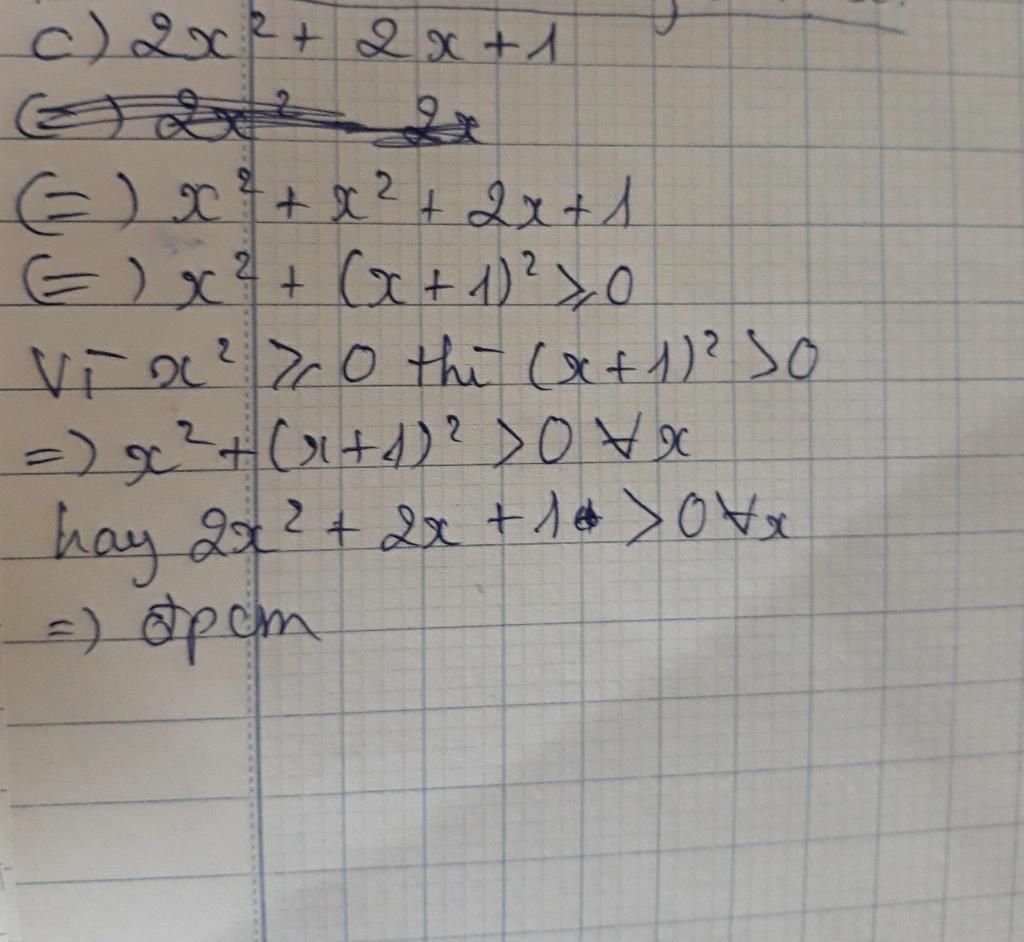 c) 2x² + 2x + 1
(=) 2x² 2x
(=) x² + x² + 2x + 1
(=) x² + (x + 1)² ⩾ 0
Vì x² ⩾ 0 thì (x + 1)² > 0
=) x² + (x + 1)² > 0 ∀x
hay 2x² + 2x + 1 > 0 ∀x
=) đpcm